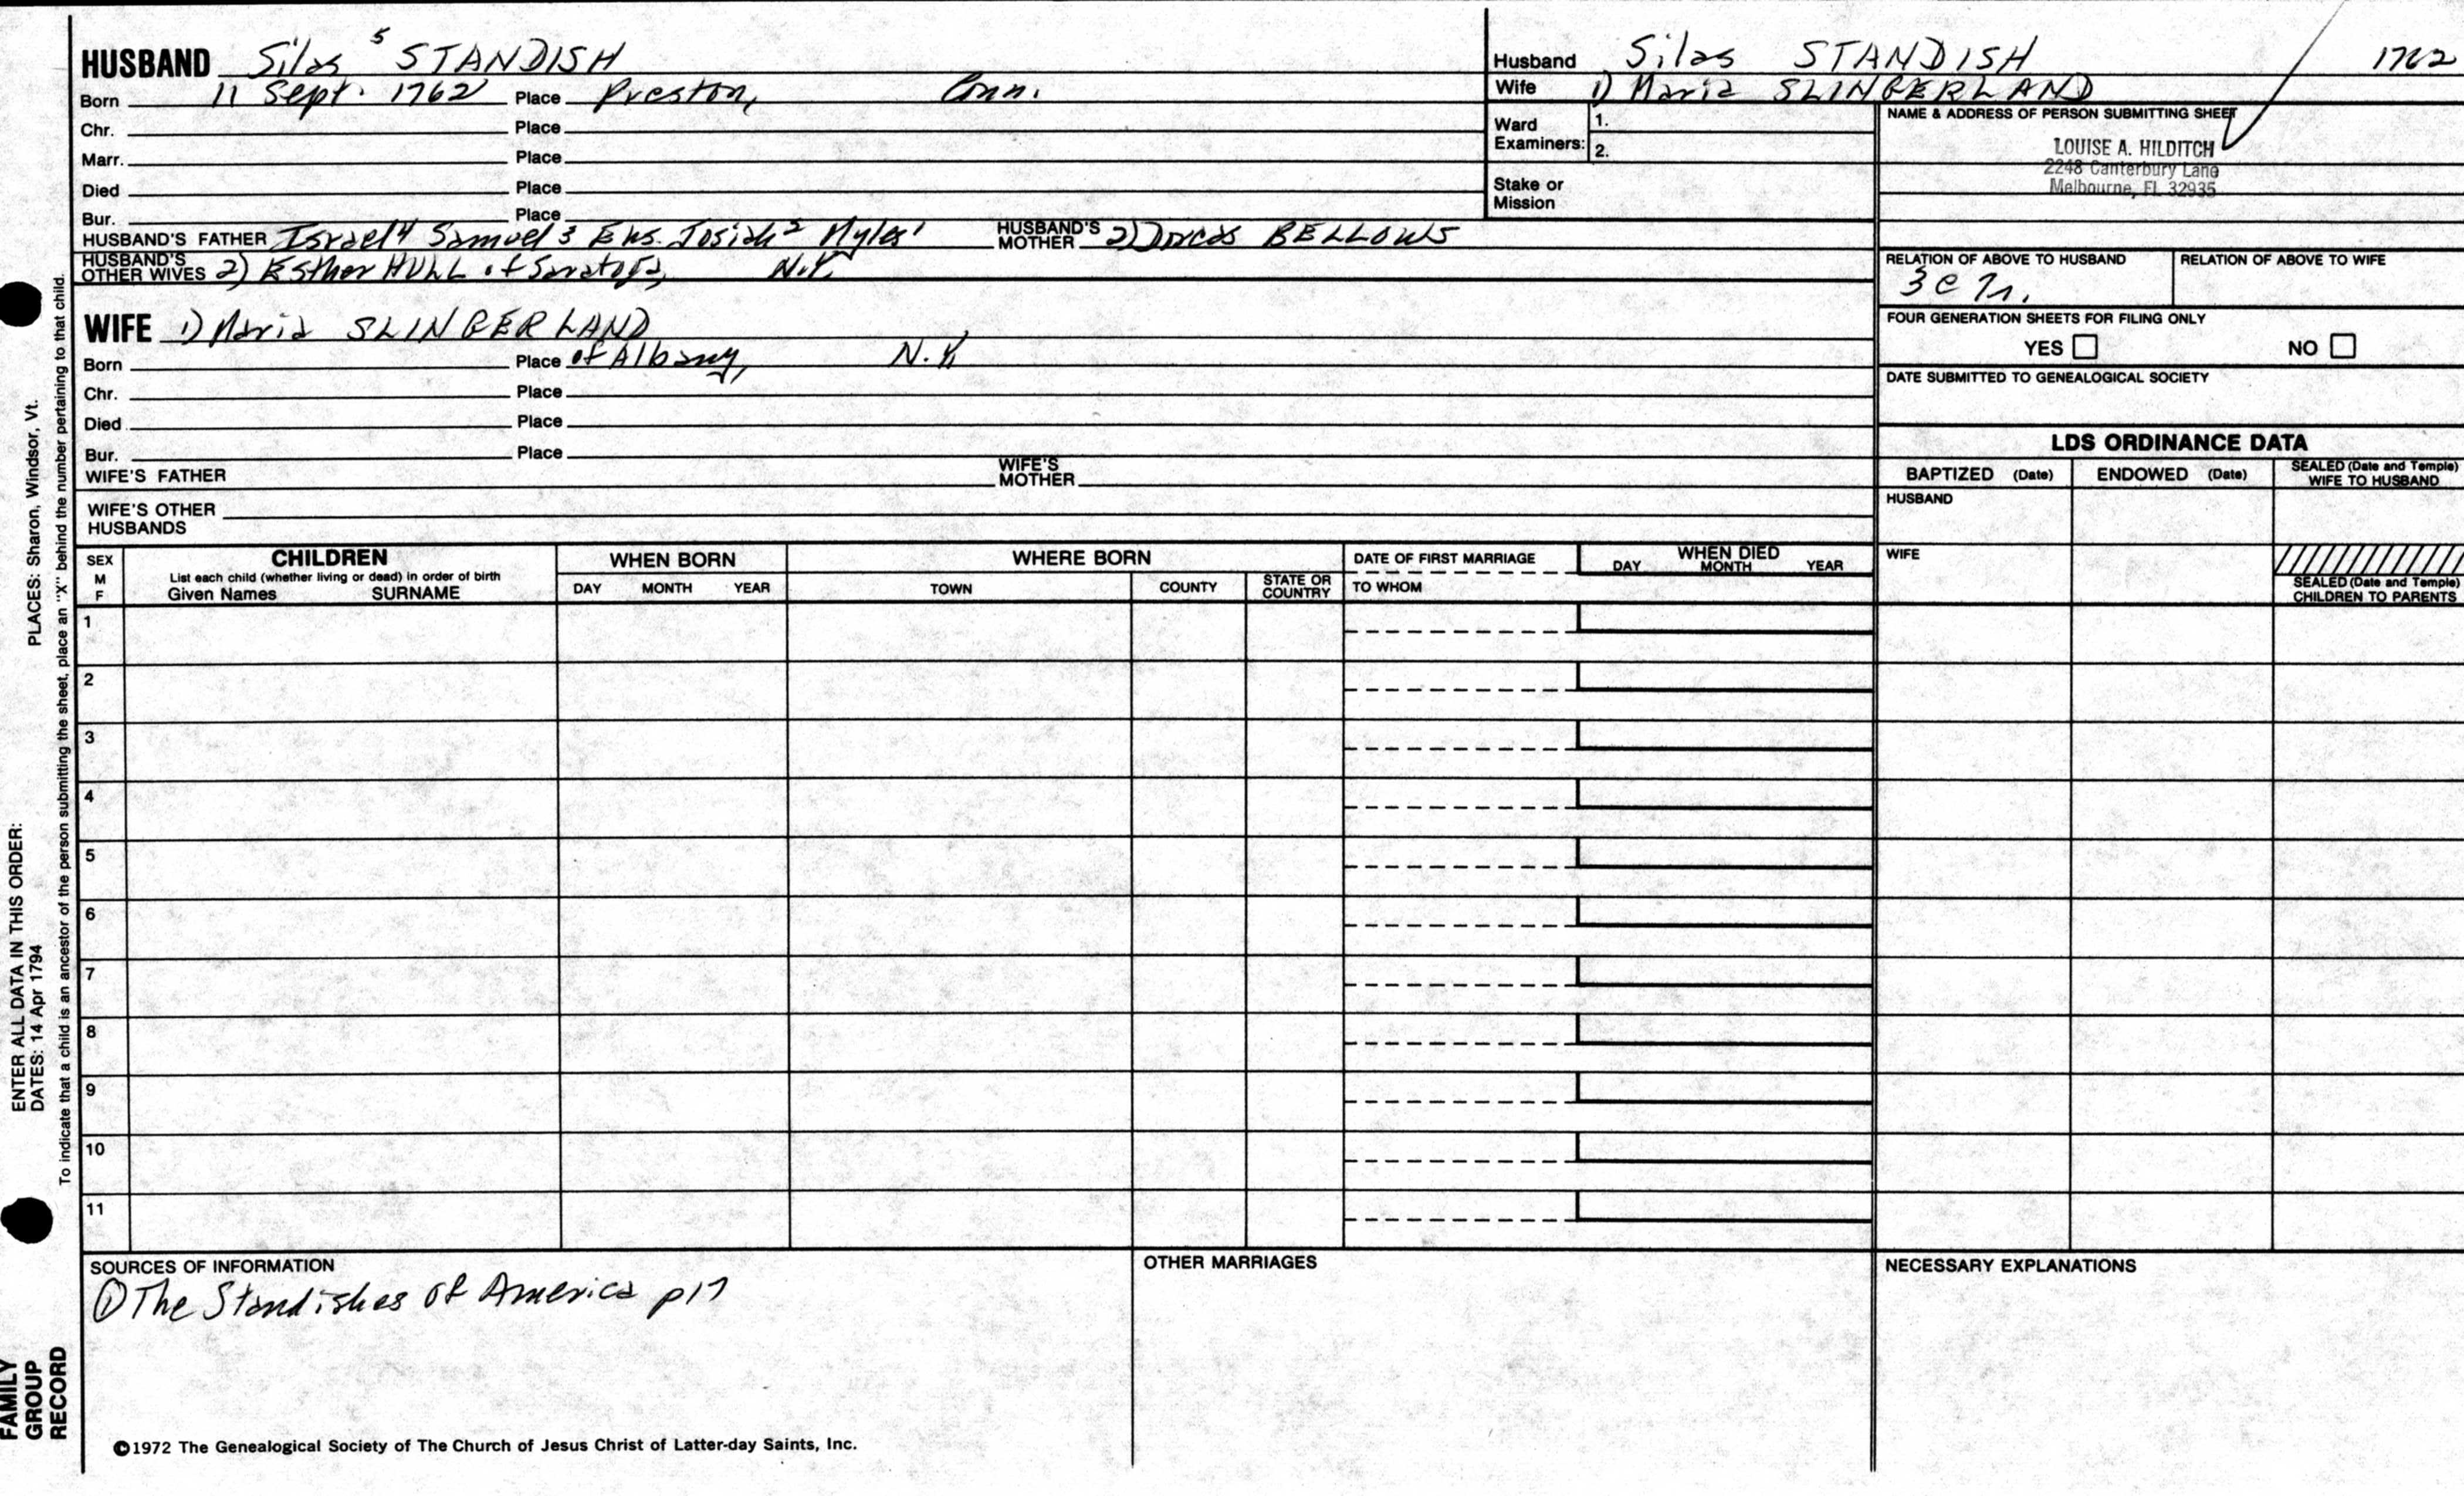 HUSBAND Silas 5 STANDISH
Born 11 Sept. 1762 Place Preston, Conn.
Chr. Place
Marr. Place
Died Place
Bur. Place
HUSBAND'S FATHER Israel4 Samuel3 Ens. Josiah2 Myles1 HUSBAND'S MOTHER 2) Dorcas BELLOWS
HUSBAND'S OTHER WIVES 2) Esther HULL of Saratoga, N.Y.
WIFE 1) Maria SLINGERLAND
Born Place of Albany, N.Y.
Chr. Place
Died Place
Bur. Place
WIFE'S FATHER WIFE'S MOTHER
WIFE'S OTHER HUSBANDS
Husband Silas STANDISH 1762
Wife 1) Maria SLINGERLAND
Ward Examiners: 1.
2.
Stake or Mission
NAME & ADDRESS OF PERSON SUBMITTING SHEET
LOUISE A. HILDITCH
2248 Canterbury Lane
Melbourne, FL 32935
RELATION OF ABOVE TO HUSBAND RELATION OF ABOVE TO WIFE
FOUR GENERATION SHEETS FOR FILING ONLY
YES NO
DATE SUBMITTED TO GENEALOGICAL SOCIETY
LDS ORDINANCE DATA
BAPTIZED (Date) ENDOWED (Date) SEALED (Date and Temple) WIFE TO HUSBAND
HUSBAND
WIFE
SEALED (Date and Temple) CHILDREN TO PARENTS
SEX M F CHILDREN WHEN BORN WHERE BORN DATE OF FIRST MARRIAGE WHEN DIED
List each child (whether living or dead) in order of birth
Given Names SURNAME DAY MONTH YEAR TOWN COUNTY STATE OR COUNTRY TO WHOM DAY MONTH YEAR
1
2
3
4
5
6
7
8
9
10
11
SOURCES OF INFORMATION OTHER MARRIAGES NECESSARY EXPLANATIONS
① The Standishes of America p17
©1972 The Genealogical Society of The Church of Jesus Christ of Latter-day Saints, Inc.
FAMILY GROUP RECORD
ENTER ALL DATA IN THIS ORDER:
DATES: 14 Apr 1794 PLACES: Sharon, Windsor, Vt.
To indicate that a child is an ancestor of the person submitting the sheet, place an "X" behind the number pertaining to that child.